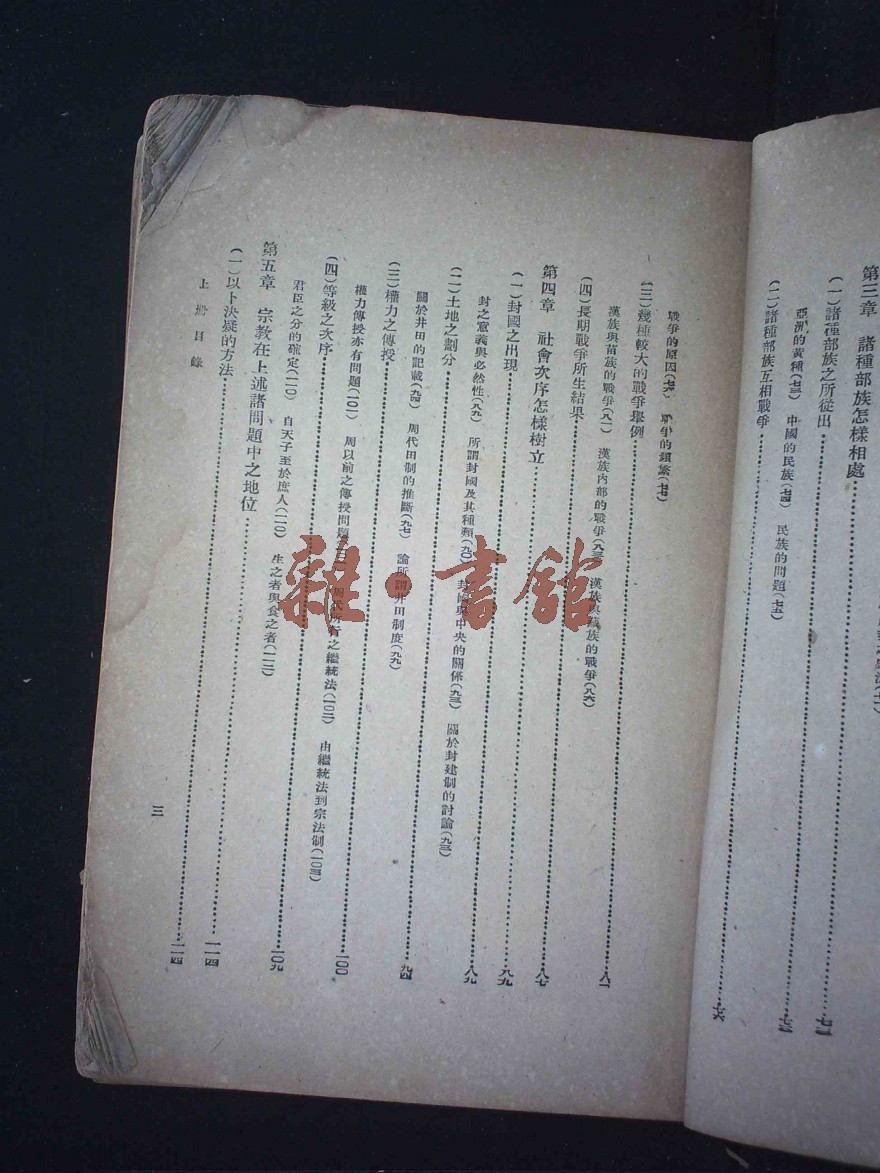 第三章 諸種部族怎樣相處
(一)諸種部族之所從出 七二
亞洲的黃種(七三) 中國的民族(七四) 民族的問題(七五)
(二)諸種部族互相戰爭 七六
戰爭的原因(七六) 戰爭的頻繁(七七)
(三)幾種較大的戰爭舉例 八一
漢族與苗族的戰爭(八一) 漢族內部的戰爭(八三) 漢族與藏族的戰爭(八六)
(四)長期戰爭所生結果 八七
第四章 社會次序怎樣樹立 八九
(一)封國之出現 八九
封之意義與必然性(八九) 所謂封國及其種類(九〇) 封國與中央的關係(九三) 關於封建制的討論(九三)
(二)土地之劃分 九四
關於井田的記載(九四) 周代田制的推斷(九七) 論所謂井田制度(九九)
(三)權力之傳授 一〇〇
權力傳授亦有問題(一〇一) 周以前之傳授問題 周代所行之繼統法(一〇二) 由繼統法到宗法制(一〇四)
(四)等級之次序 一〇九
君臣之分的確定(一一〇) 自天子至於庶人(一一〇) 生之者與食之者(一一二)
第五章 宗教在上述諸問題中之地位 一一四
(一)以卜決疑的方法 一一四
上冊目錄
三
雜·書館